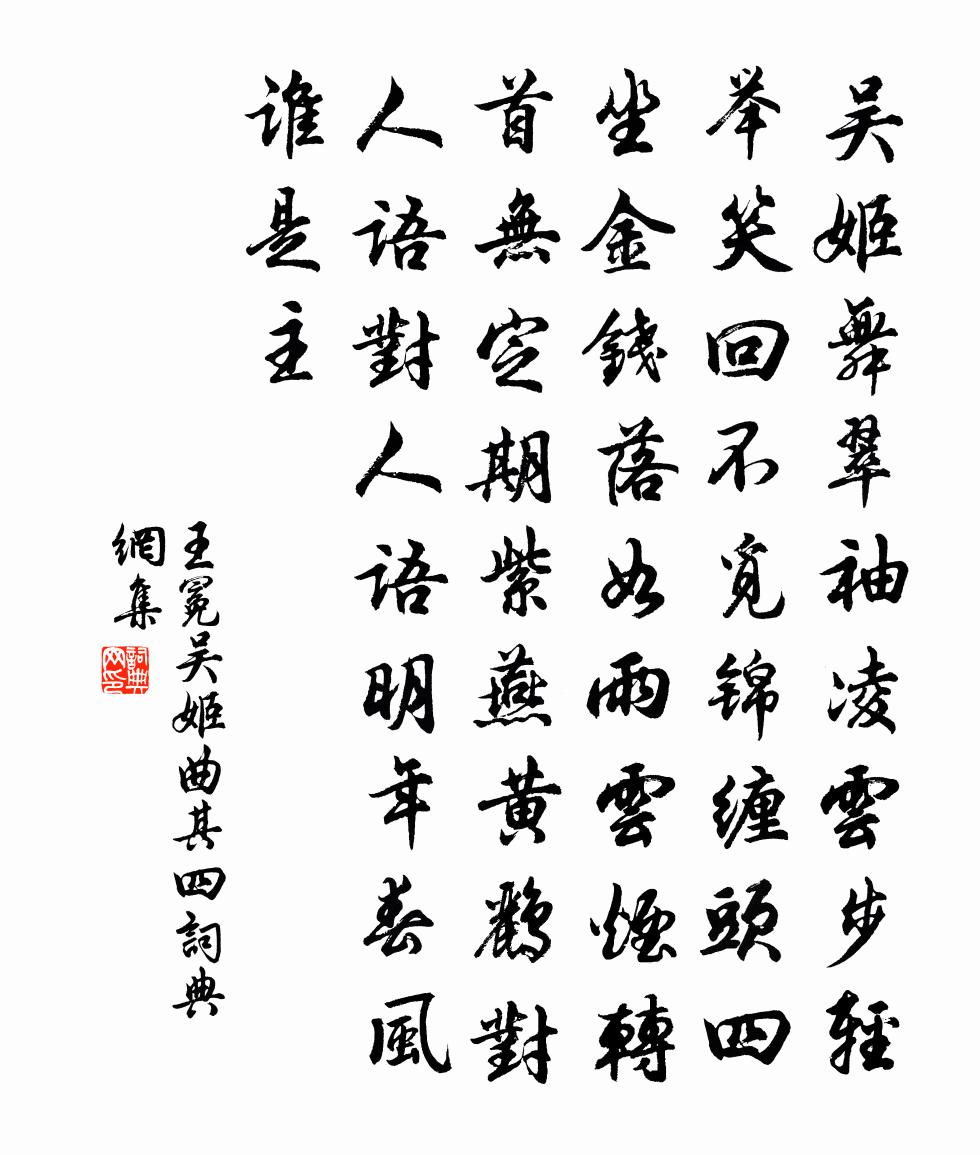 吴姬舞翠袖凌雲步輕
举笑回不覓锦缠頭四
坐金錢落如雨雲煙轉
首無定期紫燕黄鸝對
人語對人語明年春風
谁是主
王冕吴姬曲其四詞典
網集
詞典网印